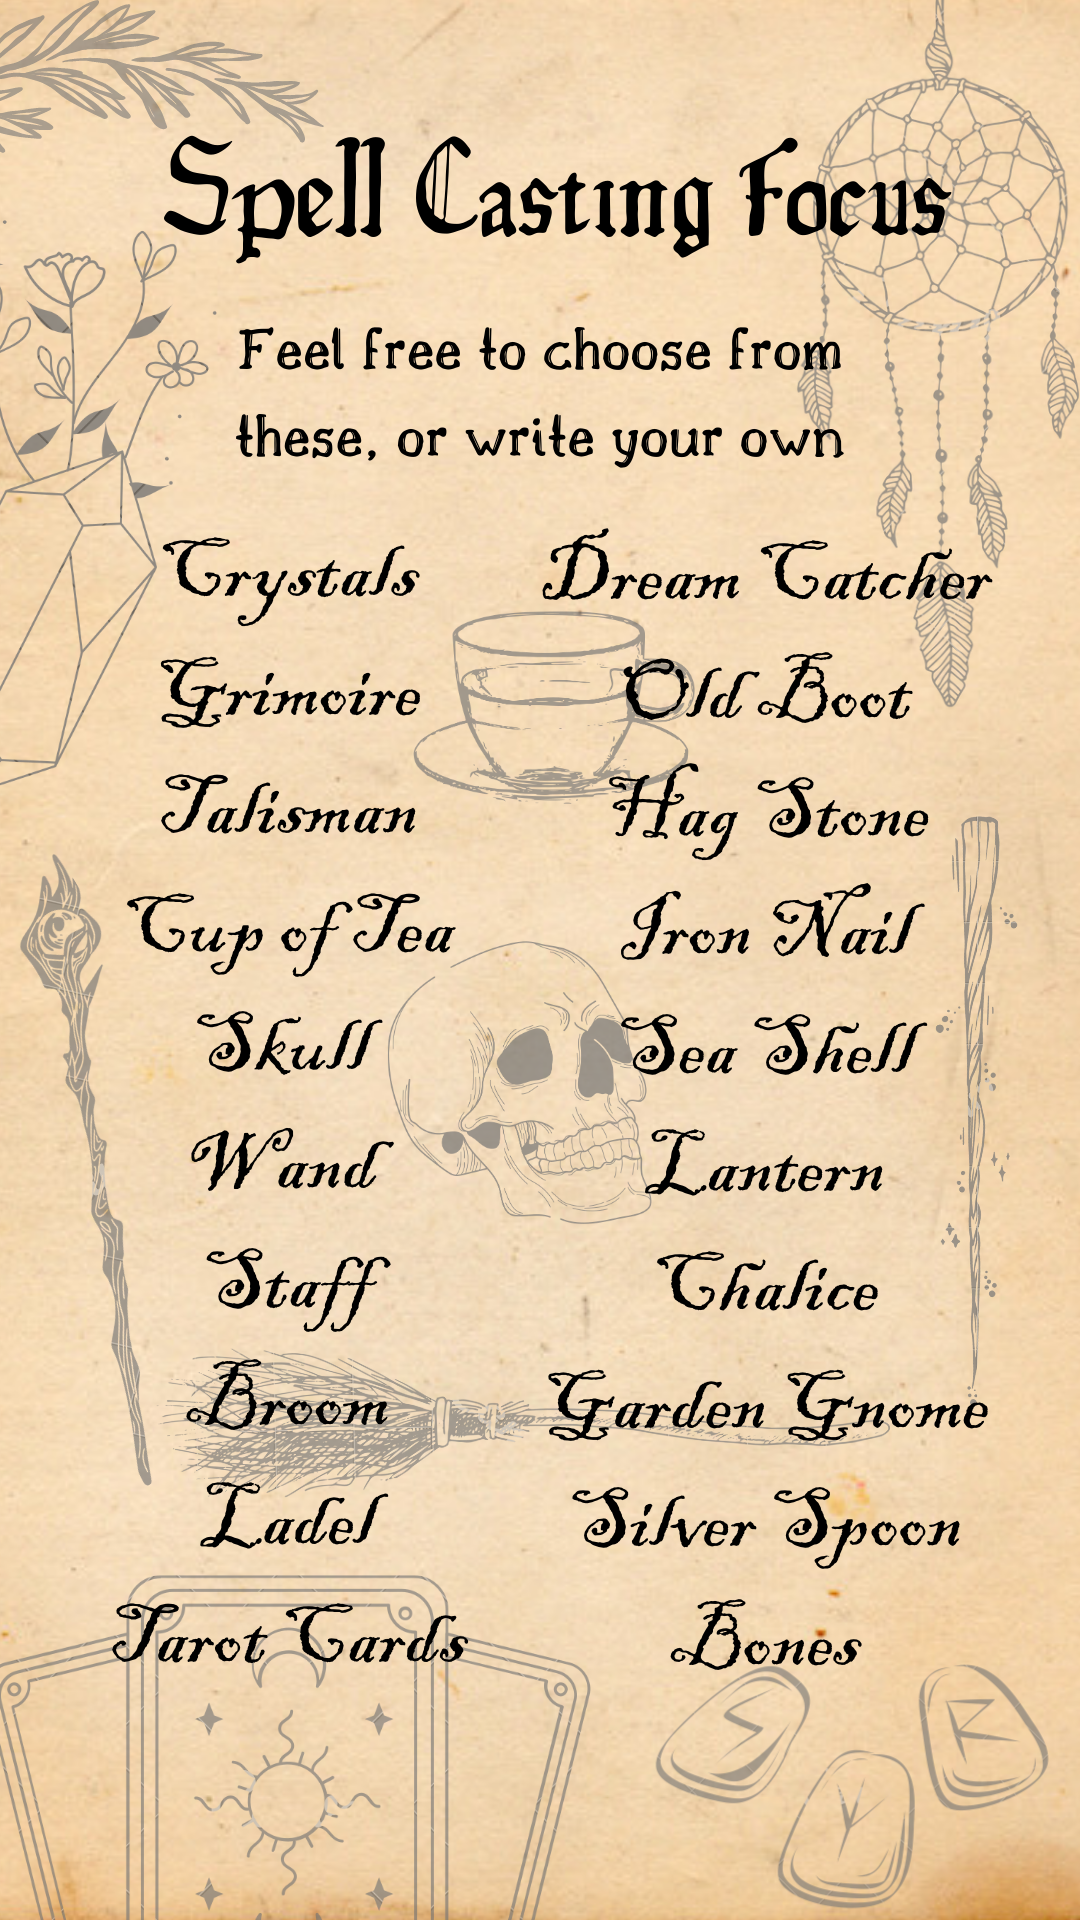 Spell Casting Focus
Feel free to choose from
these, or write your own
Crystals
Grimoire
Talisman
Cup of Tea
Skull
Wand
Staff
Broom
Ladel
Tarot Cards
Dream Catcher
Old Boot
Hag Stone
Iron Nail
Sea Shell
Lantern
Chalice
Garden Gnome
Silver Spoon
Bones